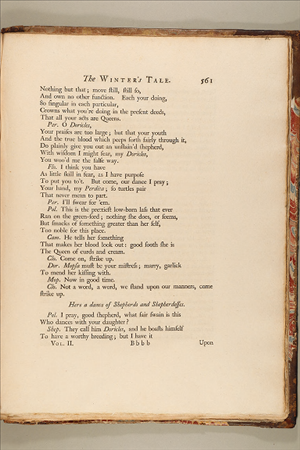 The WINTER's TALE. 561
Nothing but that; move ſtill, ſtill ſo,
And own no other function. Each your doing,
So ſingular in each particular,
Crowns what you're doing in the preſent deeds,
That all your acts are Queens.
Per. O Doricles,
Your praiſes are too large; but that your youth
And the true blood which peeps forth fairly through it,
Do plainly give you out an unſtain'd ſhepherd,
With wiſdom I might fear, my Doricles,
You woo'd me the falſe way.
Flo. I think you have
As little ſkill in fear, as I have purpoſe
To put you to't. But come, our dance I pray;
Your hand, my Perdita; ſo turtles pair
That never mean to part.
Per. I'll ſwear for 'em.
Pol. This is the prettieſt low-born laſs that ever
Ran on the green-ſord; nothing ſhe does, or ſeems,
But ſmacks of ſomething greater than her ſelf,
Too noble for this place.
Cam. He tells her ſomething
That makes her blood look out: good ſooth ſhe is
The Queen of curds and cream.
Clo. Come on, ſtrike up.
Dor. Mopſa muſt be your miſtreſs; marry, garlick
To mend her kiſſing with.
Mop. Now in good time.
Clo. Not a word, a word, we ſtand upon our manners, come
ſtrike up.
Here a dance of Shepherds and Shepherdeſſes.
Pol. I pray, good ſhepherd, what fair ſwain is this
Who dances with your daughter?
Shep. They call him Doricles, and he boaſts himſelf
To have a worthy breeding; but I have it
VOL. II. B b b b Upon